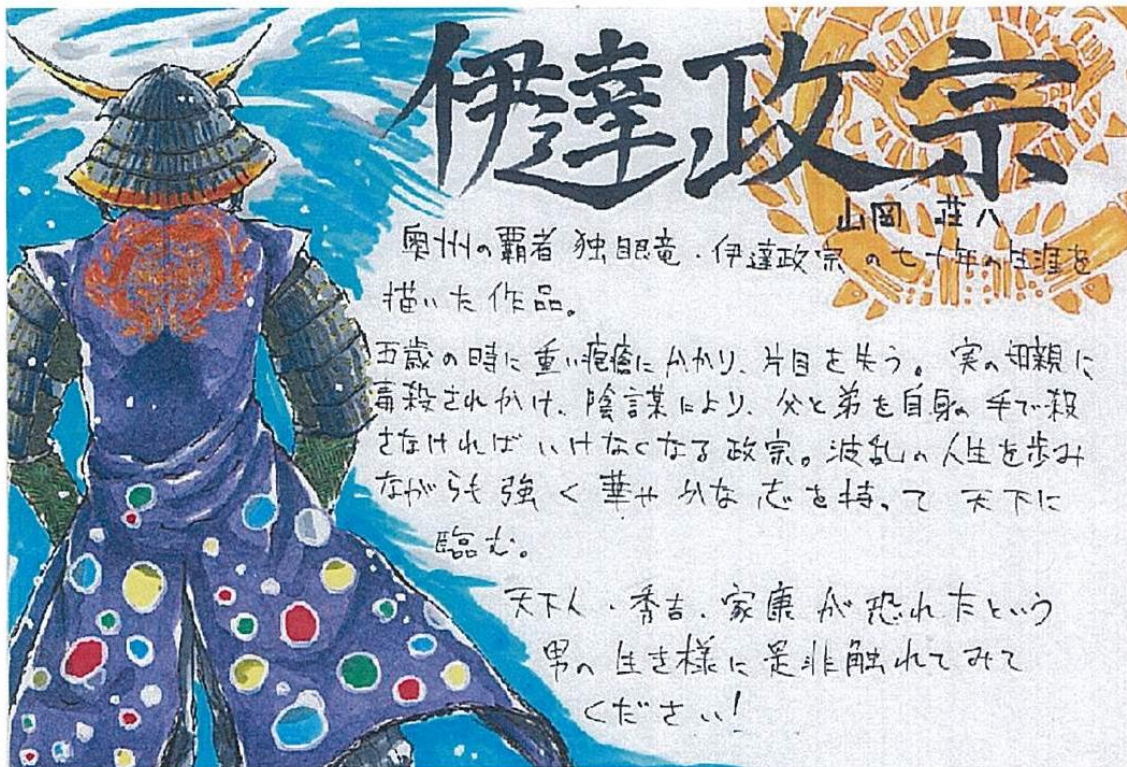 伊達政宗
山岡荘八
奥州の覇者 独眼竜・伊達政宗の七十年の生涯を
描いた作品。
五歳の時に重い疱瘡にかかり、片目を失う。実の母親に
毒殺されかけ、陰謀により、父と弟を自身の手で殺
さなければいけなくなる政宗。波乱の人生を歩み
ながらも強く華やかな志を持って天下に
臨む。
天下人・秀吉、家康が恐れたという
男の生き様に是非触れてみて
ください!